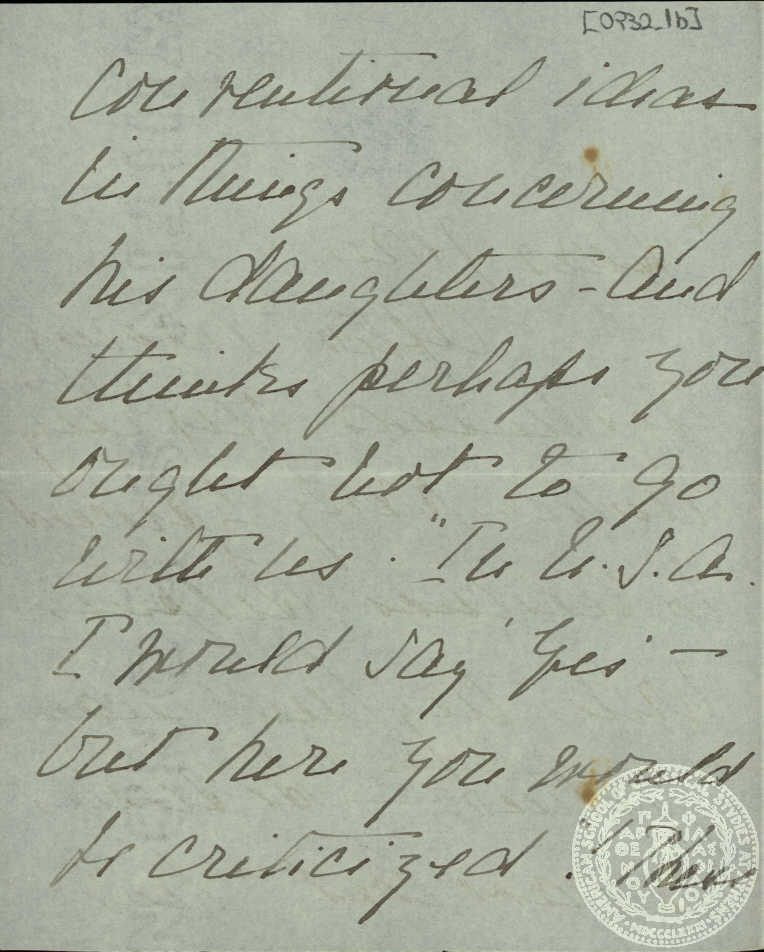 [0932_1b]
conventional ideas
in things concerning
his daughters - and
thinks perhaps you
ought not to go
with us. "In U.S.A.
I would say 'Yes' -
but here you would
be criticized."
AMERICAN SCHOOL OF CLASSICAL STUDIES AT
MDCCCLXXXI